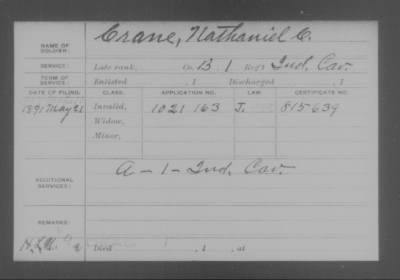 NAME OF SOLDIER: Crane, Nathaniel C.
SERVICE: Late rank, Co. B 1 Reg't Ind. Cav.
TERM OF SERVICE: Enlisted , 1 Discharged , 1
DATE OF FILING. CLASS. APPLICATION NO. LAW. CERTIFICATE NO.
1891 May 21 Invalid, 1021 163 J. 815639
Widow,
Minor,
ADDITIONAL SERVICES: A-1-Ind. Cav.
REMARKS:
Died , 1 , at